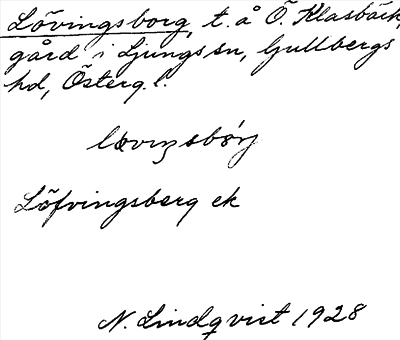 Lövingsborg, t. å Ö. Klasbäck,
gård i Ljungs sn, Gullbergs
hd, Österg. l.
Löfvingsberg ek
N. Lindqvist 1928